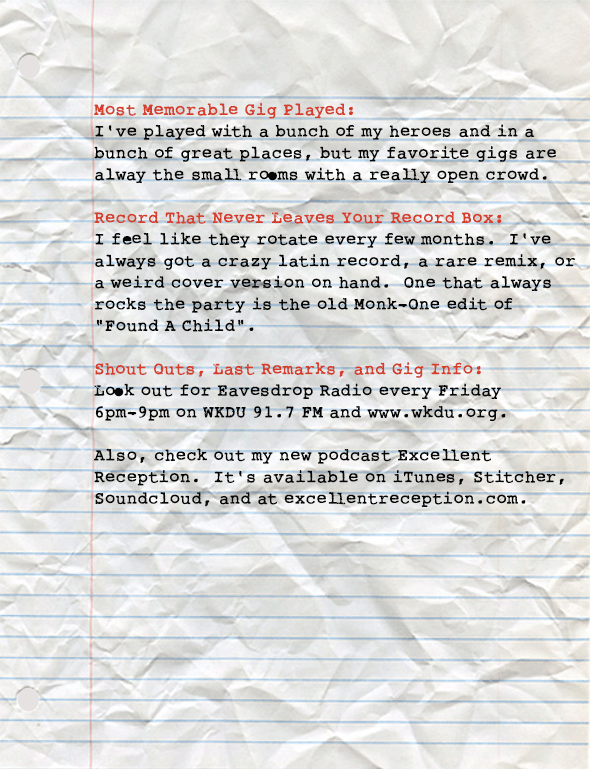 Most Memorable Gig Played:
I've played with a bunch of my heroes and in a
bunch of great places, but my favorite gigs are
alway the small rooms with a really open crowd.
Record That Never Leaves Your Record Box:
I feel like they rotate every few months. I've
always got a crazy latin record, a rare remix, or
a weird cover version on hand. One that always
rocks the party is the old Monk-One edit of
"Found A Child".
Shout Outs, Last Remarks, and Gig Info:
Look out for Eavesdrop Radio every Friday
6pm-9pm on WKDU 91.7 FM and www.wkdu.org.
Also, check out my new podcast Excellent
Reception. It's available on iTunes, Stitcher,
Soundcloud, and at excellentreception.com.